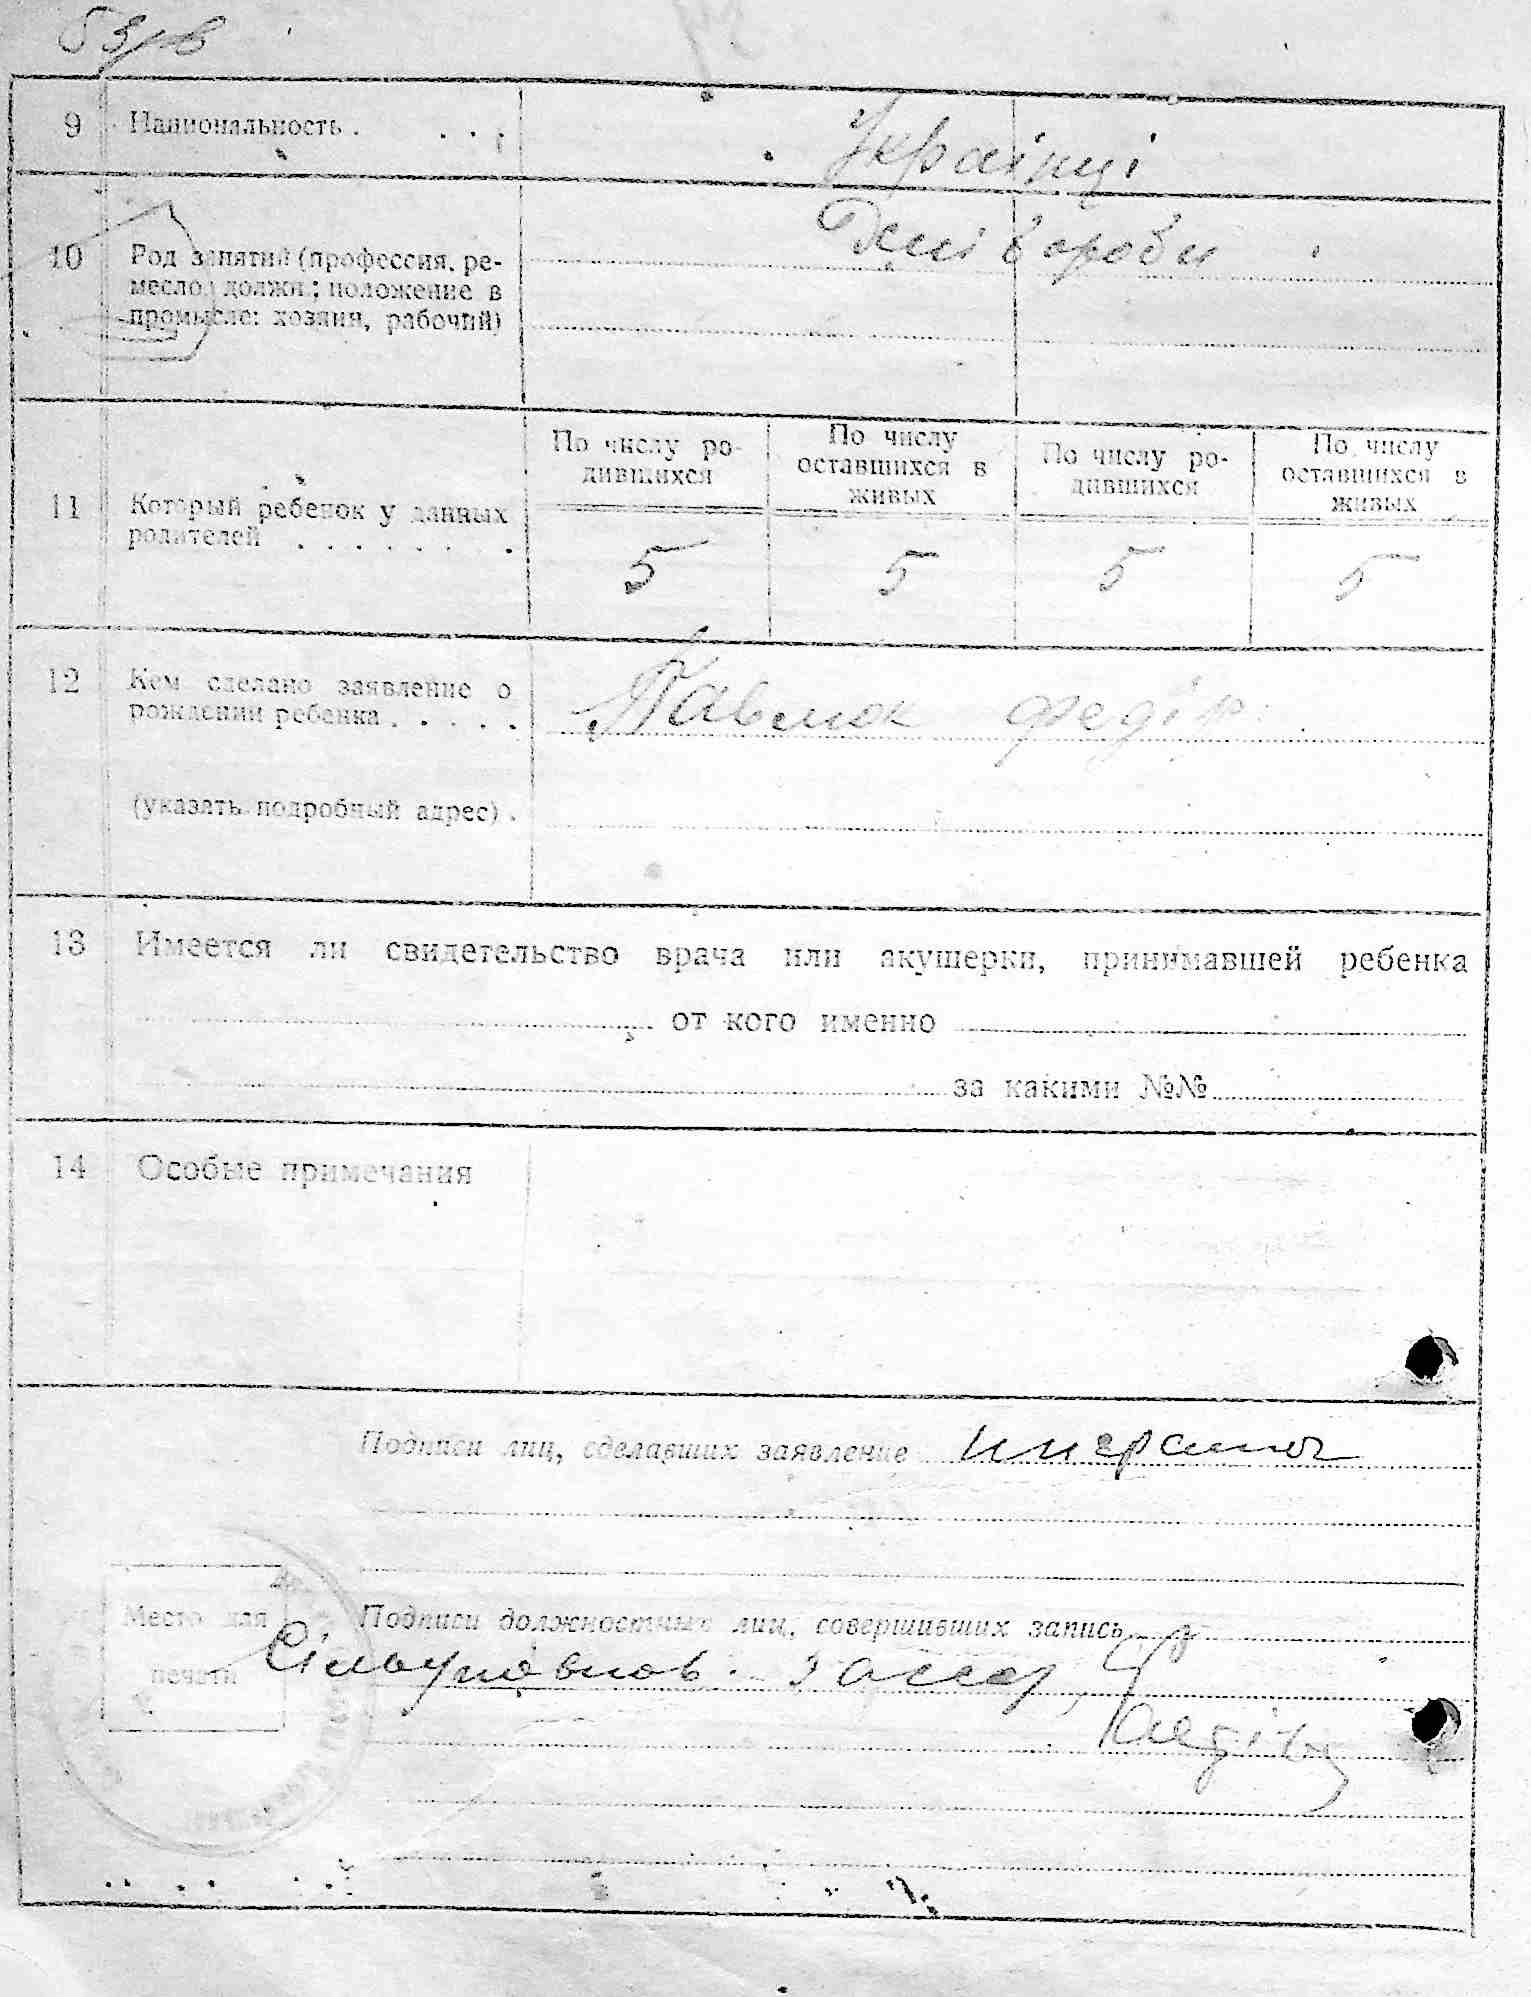 9 Национальность . . . .
Українці
10 Род занятий (профессия, ре-
месло, должн.; положение в
промысле: хозяин, рабочий)
По числу ро-
дившихся
По числу
оставшихся в
живых
По числу ро-
дившихся
По числу
оставшихся в
живых
11 Который ребенок у данных
родителей . . . . . . . .
5 5 5 5
12 Кем сделано заявление о
рождении ребенка . . . . .
Павлюк Федір
(указать подробный адрес) .
13 Имеется ли свидетельство врача или акушерки, принимавшей ребенка
от кого именно
за какими №№
14 Особые примечания
Подписи лиц, сделавших заявление
Место для
печати
Подписи должностных лиц, совершивших запись